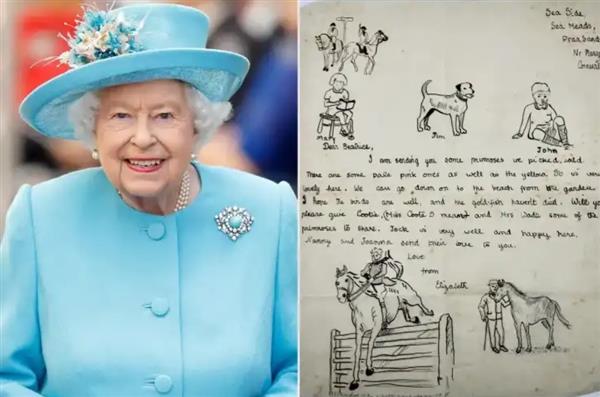 Sea Side,
Sea Meads,
Praa Sands
Nr
Mary
Jim
John
Dear Beatrice,
I am sending you some primroses we picked, wild.
There are some pale pink ones as well as the yellow. It is very
lovely here. We can go down on to the beach from the garden.
I hope the birds are well, and the goldfish haven't died. Will you
please give Cootie, (Miss Coote I mean) and Mrs Wads some of the
primroses to share. Jock is very well and happy here.
Nanny and Joanna send their love to you.
Love
from
Elizabeth